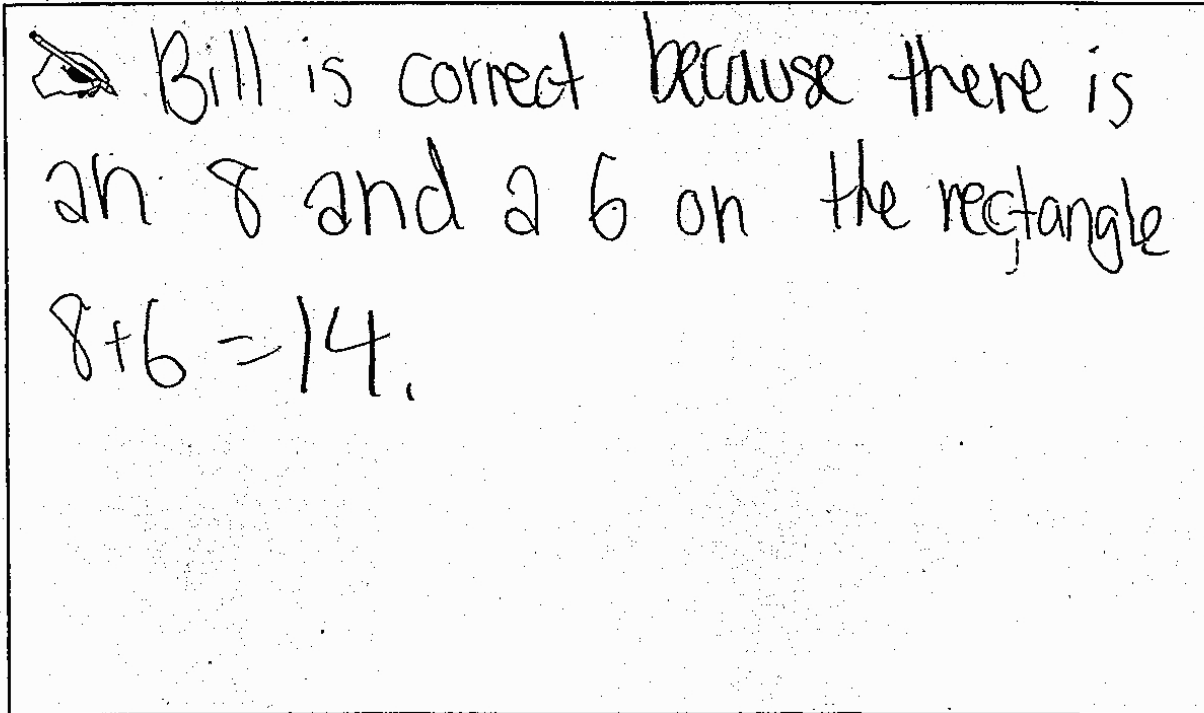 Bill is correct because there is
an 8 and a 6 on the rectangle,
8+6=14.